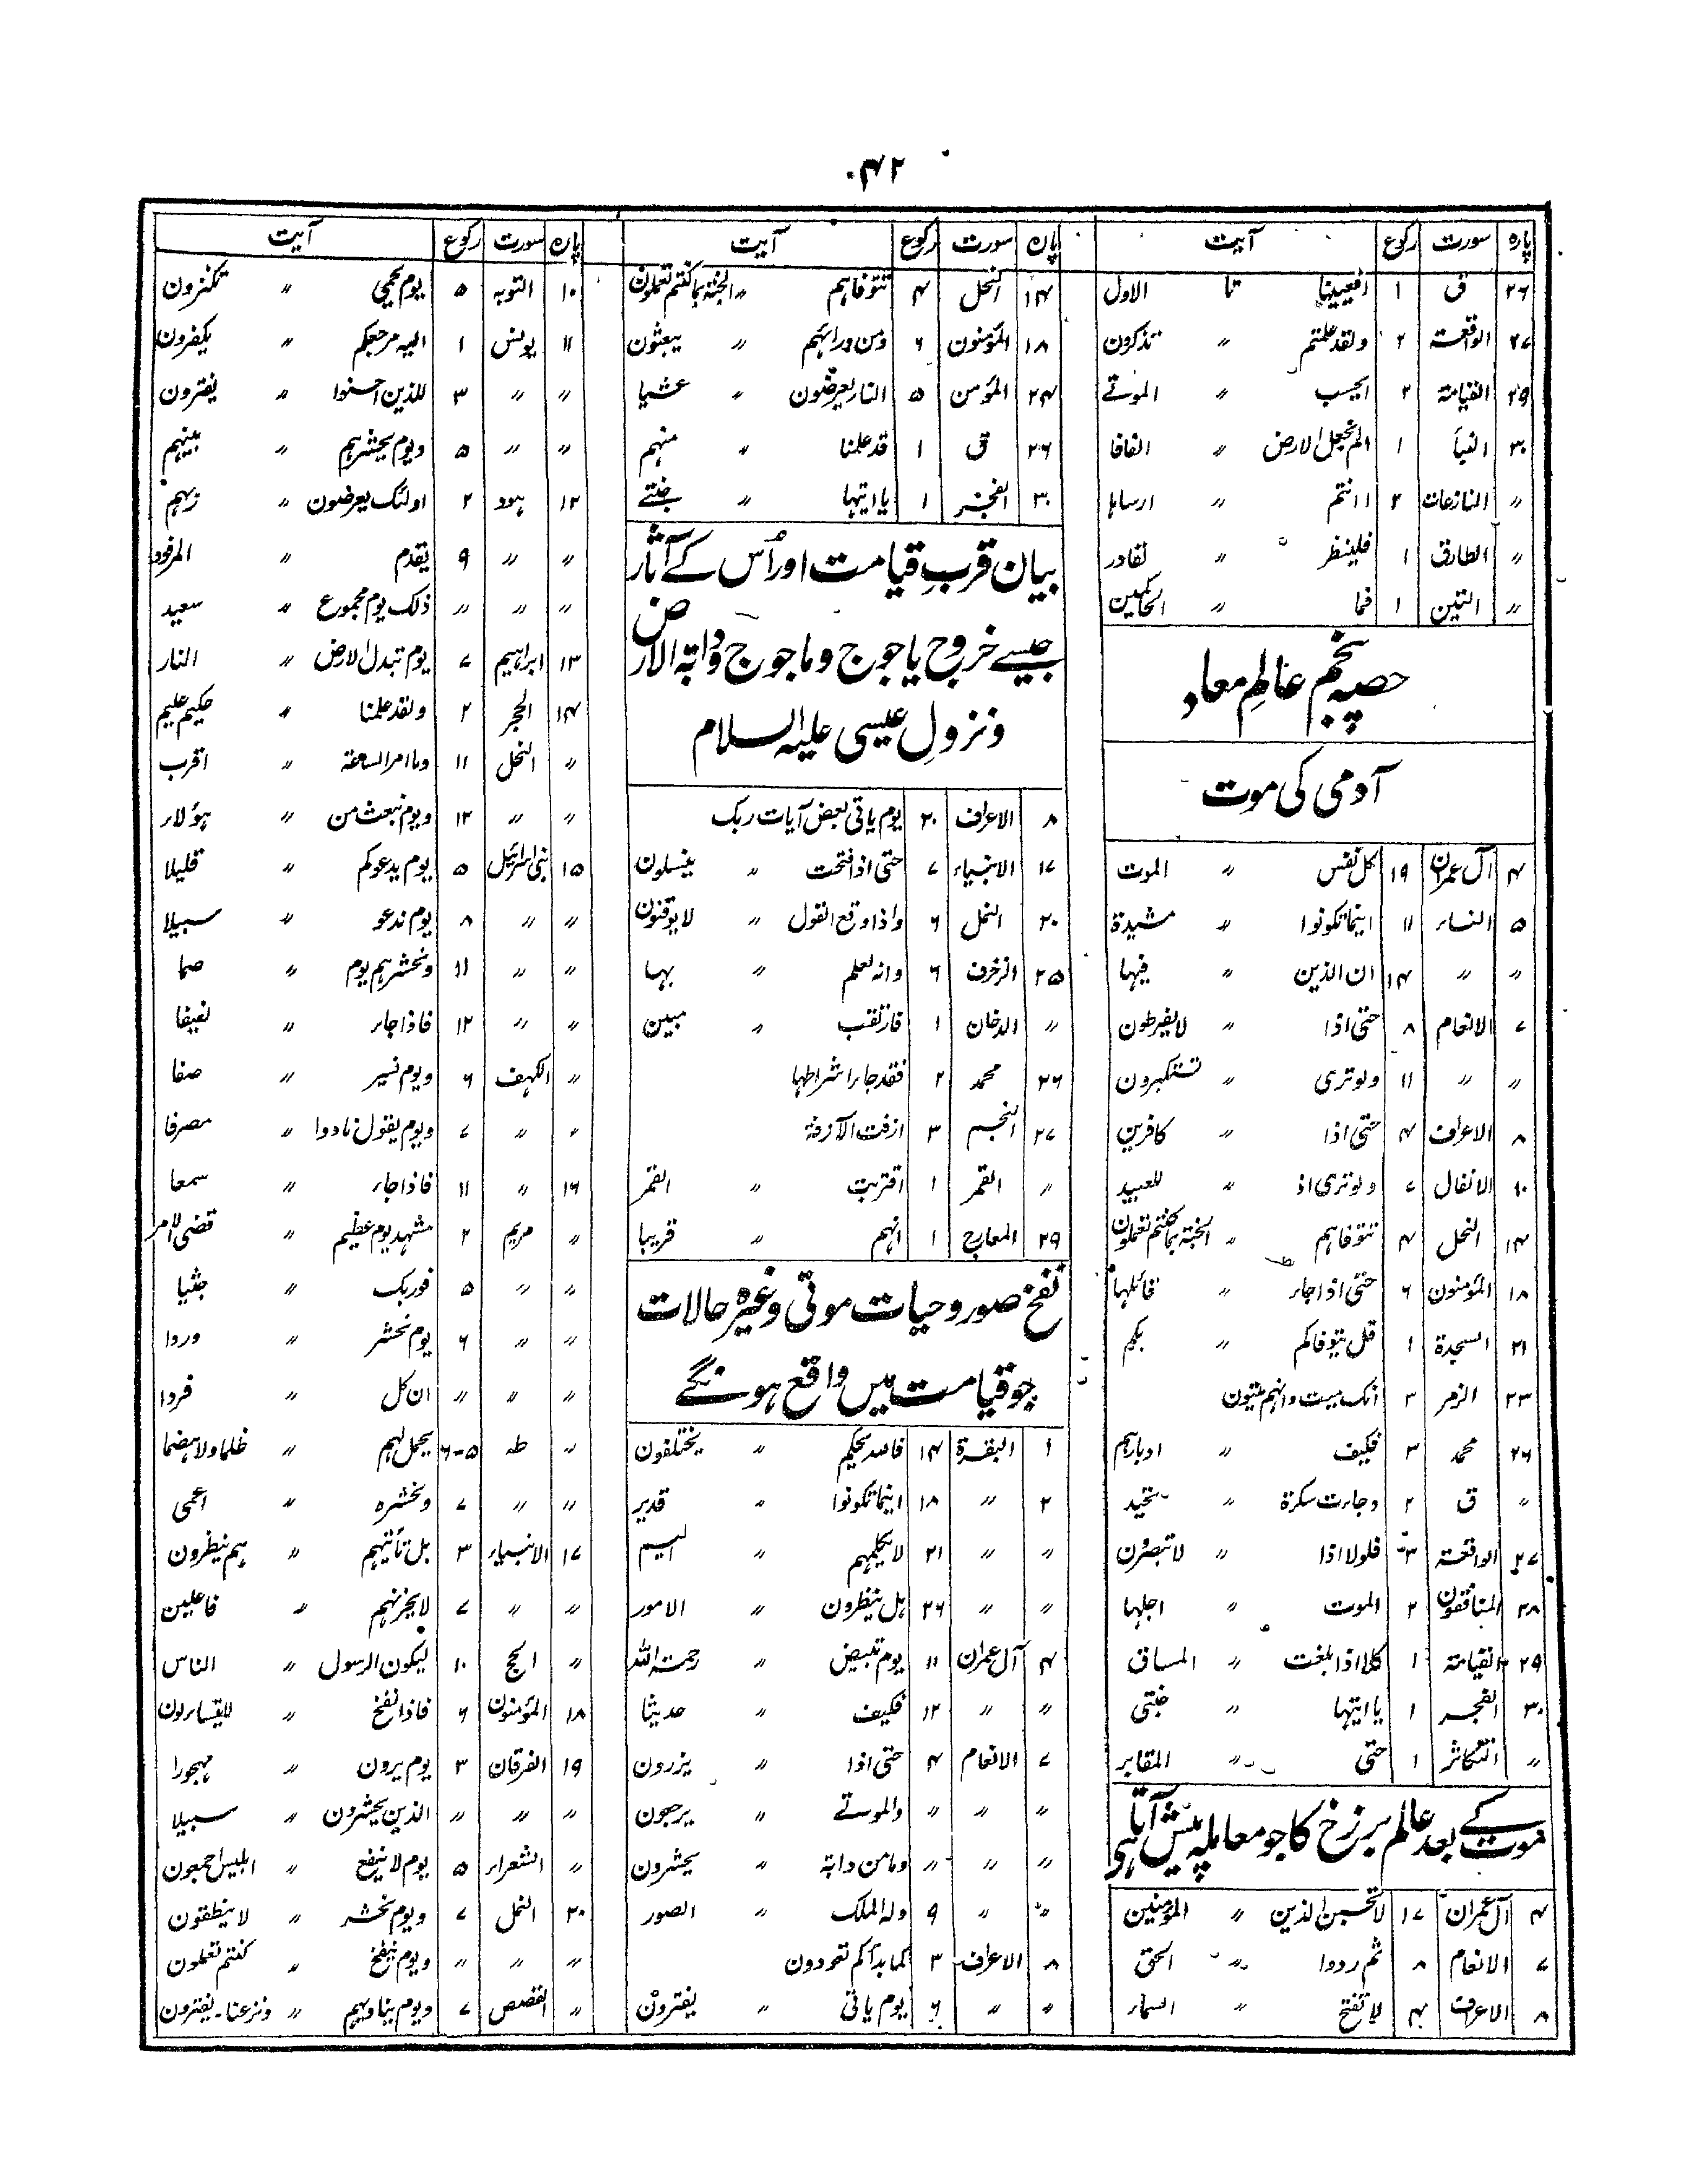 ۴۲
پارہ سورت رکوع آیت
۲۶ ق ۱ افعیینا تا الاول
۲۷ الواقعۃ ۲ ولقد علمتم 〃 تذکرون
۲۹ القیامۃ ۲ ایحسب 〃 الموتے
۳۰ النبأ ۱ الم نجعل الارض 〃 الفافا
〃 النازعات ۲ اانتم 〃 ارساہا
〃 الطارق ۱ فلینظر 〃 لقادر
〃 التین ۱ فما 〃 الحاکمین
حصہ پنجم عالم معاد
آدمی کی موت
۴ آل عمران ۱۹ کل نفس 〃 الموت
۵ النساء ۱۱ اینما تکونوا 〃 مشیدۃ
〃 〃 ۱۴ ان الذین 〃 فیہا
۷ الانعام ۸ حتی اذا 〃 لا یفرطون
〃 〃 ۱۱ ولو تری 〃 تستکبرون
۸ الاعراف ۴ حتی اذا 〃 کافرین
۱۰ الانفال ۷ ولو تری اذ 〃 للعبید
۱۴ النحل ۴ تتوفاہم 〃 الجنۃ بما کنتم تعملون
۱۸ المؤمنون ۶ حتی اذا جاء 〃 قائلہا
۲۱ السجدۃ ۱ قل یتوفاکم 〃 بکم
۲۳ الزمر ۳ انک میت وانہم میتون
۲۶ محمد ۳ فکیف 〃 ادبارہم
〃 ق ۲ وجاءت سکرۃ 〃 تحید
۲۷ الواقعۃ ۳ فلولا اذا 〃 لا تبصرون
۲۸ المنافقون ۲ الموت 〃 اجلہا
۲۹ القیامۃ ۱ کلا اذا بلغت 〃 المساق
۳۰ الفجر ۱ یا ایتہا 〃 جنتی
〃 التکاثر ۱ حتی 〃 المقابر
موت کے بعد عالم برزخ کا جو معاملہ پیش آتا ہی
۴ آل عمران ۱۷ لا تحسبن الذین 〃 المؤمنین
۷ الانعام ۸ ثم ردوا 〃 الحق
۸ الاعراف ۴ لا تفتح 〃 السماء
پارہ سورت رکوع آیت
۱۴ النحل ۴ تتوفاہم 〃 الجنۃ بما کنتم تعملون
۱۸ المؤمنون ۶ ومن ورائہم 〃 یبعثون
۲۴ المؤمن ۵ النار یعرضون 〃 عشیا
۲۶ ق ۱ قد علمنا 〃 منہم
۳۰ الفجر ۱ یا ایتہا 〃 جنتے
بیان قرب قیامت اور اُس کے آثار
جیسے خروج یاجوج وماجوج ودابۃ الارض
ونزولِ عیسی علیہ السلام
۸ الاعراف ۲۰ یوم یاتی بعض آیات ربک
۱۷ الانبیاء ۷ حتی اذا فتحت 〃 ینسلون
۲۰ النمل ۶ واذا وقع القول 〃 لا یوقنون
۲۵ الزخرف ۶ وانہ لعلم 〃 بہا
〃 الدخان ۱ فارتقب 〃 مبین
۲۶ محمد ۲ فقد جاء اشراطہا
۲۷ النجم ۳ ازفت الآزفۃ
〃 القمر ۱ اقتربت 〃 القمر
۲۹ المعارج ۱ انہم 〃 قریبا
نفخ صور وحیات موتی وغیرہ حالات
جو قیامت میں واقع ہونگے
۱ البقرۃ ۱۴ فاللہ یحکم 〃 یختلفون
۲ 〃 ۱۸ اینما تکونوا 〃 قدیر
〃 〃 ۲۱ لا یکلمہم 〃 الیم
〃 〃 ۲۶ ہل ینظرون 〃 الامور
۴ آل عمران ۱۱ یوم تبیض 〃 رحمت اللہ
〃 〃 ۱۲ فکیف 〃 حدیثا
۷ الانعام ۴ حتی اذا 〃 یزرون
〃 〃 〃 والموتے 〃 یرجعون
〃 〃 〃 وما من دابۃ 〃 یحشرون
〃 〃 ۹ ولہ الملک 〃 الصور
۸ الاعراف ۳ کما بدأکم تعودون
〃 〃 ۶ یوم یاتی 〃 یفترون
پارہ سورت رکوع آیت
۱۰ التوبہ ۵ یوم یحمی 〃 تکنزون
۱۱ یونس ۱ الیہ مرجعکم 〃 یکفرون
〃 〃 ۳ للذین احسنوا 〃 یفترون
〃 〃 ۵ ویوم یحشرہم 〃 بینہم
۱۲ ہود ۲ اولئک یعرضون 〃 ربہم
〃 〃 ۹ یقدم 〃 المرفود
〃 〃 〃 ذلک یوم مجموع 〃 سعید
۱۳ ابراہیم ۷ یوم تبدل الارض 〃 النار
۱۴ الحجر ۲ ولقد علمنا 〃 حکیم علیم
〃 النحل ۱۱ وما امر الساعۃ 〃 اقرب
〃 〃 ۱۲ ویوم نبعث من 〃 ہؤلاء
۱۵ بنی اسرائیل ۵ یوم یدعوکم 〃 قلیلا
〃 〃 ۸ یوم ندعو 〃 سبیلا
〃 〃 ۱۱ ونحشرہم یوم 〃 صما
〃 〃 ۱۲ فاذا جاء 〃 لفیفا
〃 الکہف ۶ ویوم نسیر 〃 صفا
〃 〃 ۷ ویوم یقول نادوا 〃 مصرفا
۱۶ 〃 ۱۱ فاذا جاء 〃 سمعا
〃 مریم ۲ مشہد یوم عظیم 〃 قضی الامر
〃 〃 ۵ فوربک 〃 جثیا
〃 〃 ۶ یوم نحشر 〃 وردا
〃 〃 〃 ان کل 〃 فردا
〃 طہ ۵-۶ یحمل لہم 〃 ظلما ولا ہضما
〃 〃 ۷ ونحشرہ 〃 اعمی
۱۷ الانبیاء ۳ بل تأتیہم 〃 ہم ینظرون
〃 〃 ۷ لا یحزنہم 〃 فاعلین
〃 الحج ۱۰ لیکون الرسول 〃 الناس
۱۸ المؤمنون ۶ فاذا نفخ 〃 لا یتساءلون
۱۹ الفرقان ۳ یوم یرون 〃 مہجورا
〃 〃 〃 الذین یحشرون 〃 سبیلا
〃 الشعراء ۵ یوم لا ینفع 〃 ابلیس اجمعون
۲۰ النمل ۷ ویوم نحشر 〃 لا ینطقون
〃 〃 〃 ویوم ینفخ 〃 کنتم تعملون
〃 القصص ۷ ویوم ینادیہم 〃 ونزعنا۔ یفترون